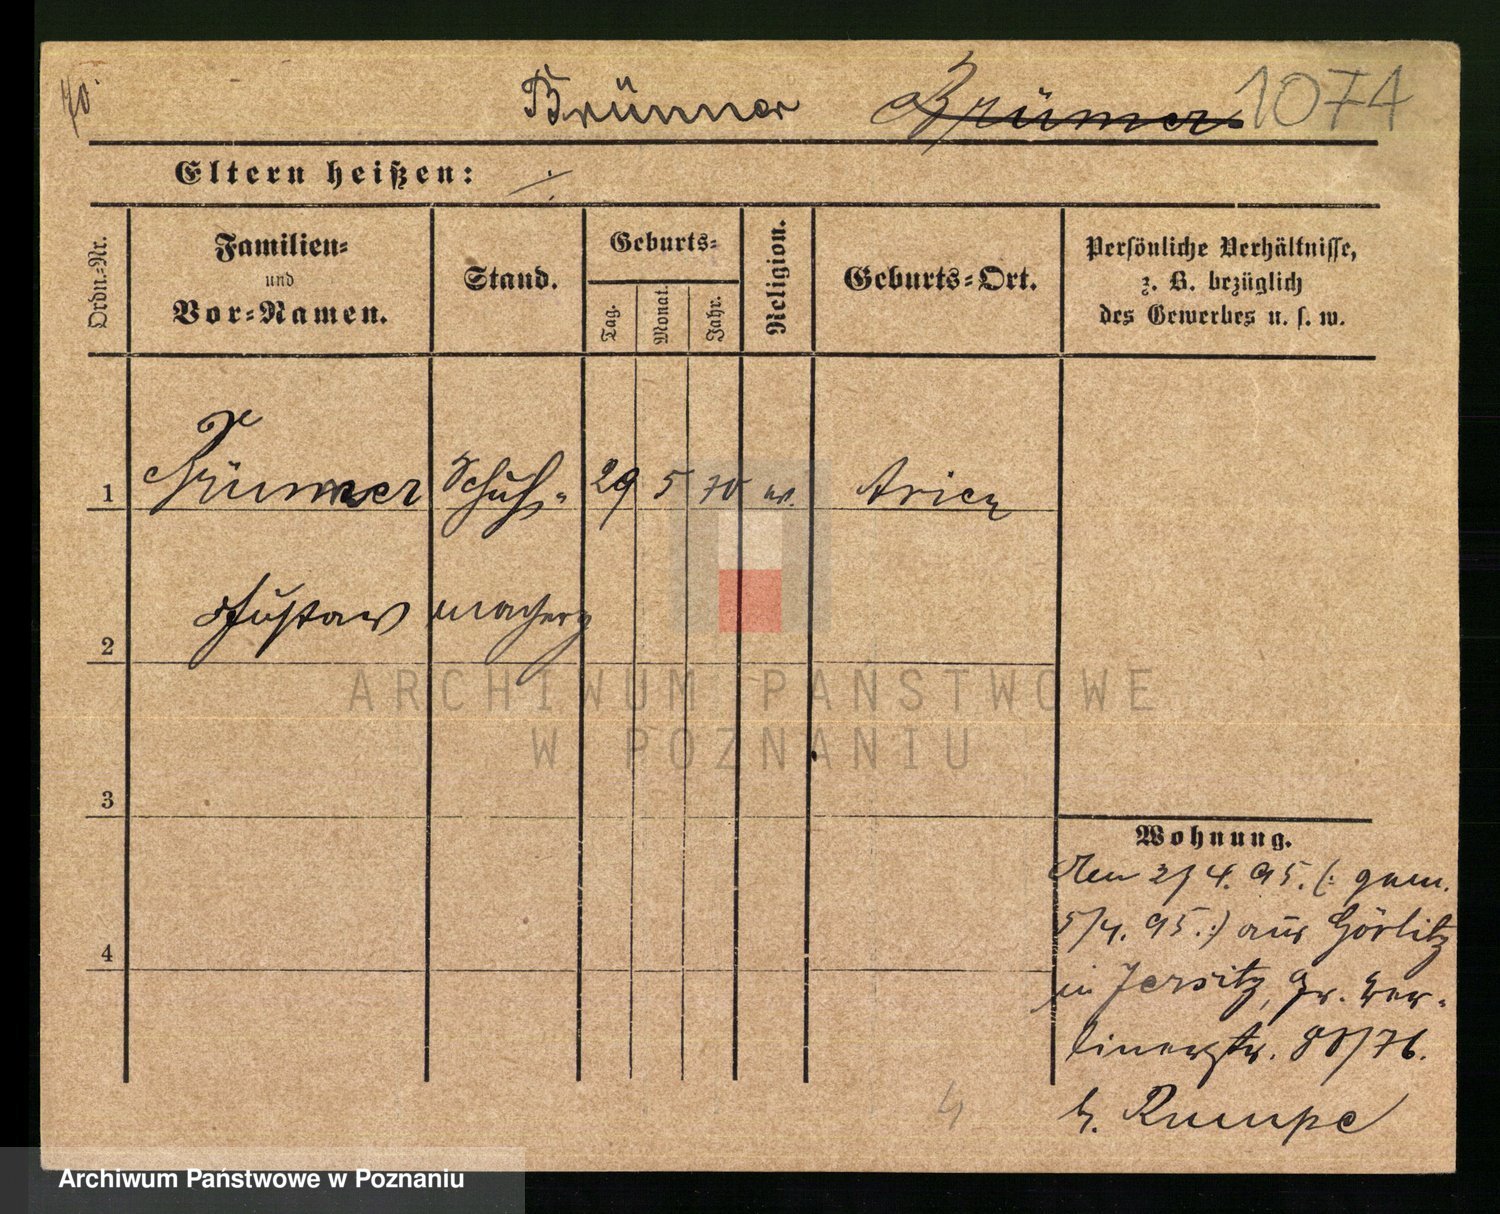 70.
Brünner Brümer 1074
Eltern heißen: ./.
Ordn.=Nr.
Familien=
und
Vor=Namen.
Stand.
Geburts=
Tag.
Monat.
Jahr.
Religion.
Geburts=Ort.
Persönliche Verhältnisse,
z. B. bezüglich
des Gewerbes u. s. w.
1 Schuh= 29 5 70 ev.
2 Gustav macherg
3
4
ARCHIWUM PAŃSTWOWE
W POZNANIU
Wohnung.
Den 2/4. 95. (: gem.
5/4. 95. :) aus Görlitz
in Jersitz, Gr. Ber=
linerstr. 80/76.
b. Rumpe
4
Archiwum Państwowe w Poznaniu